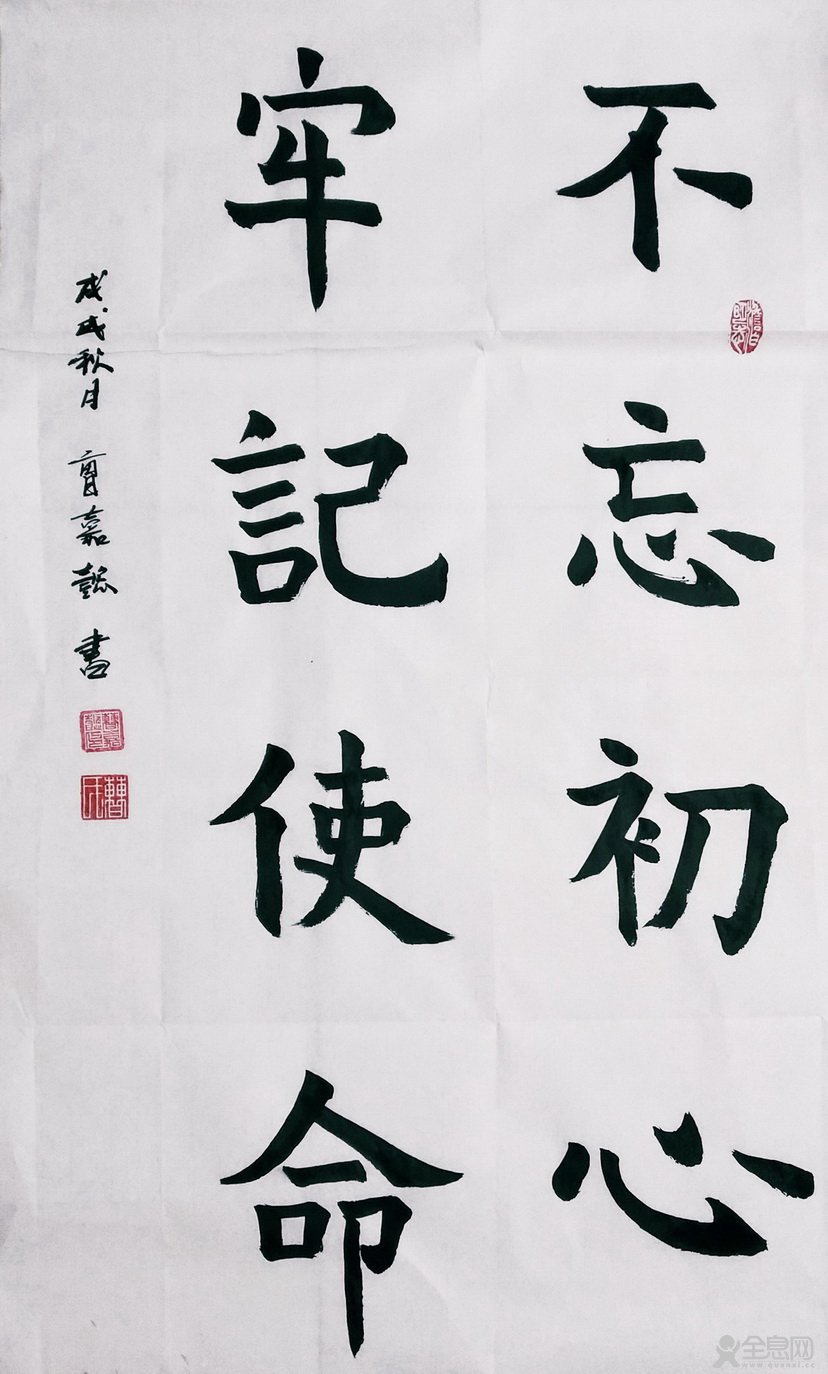 不忘初心
牢記使命
戊戌秋月 曹嘉懿 書
全息网
www.quanxi.cc